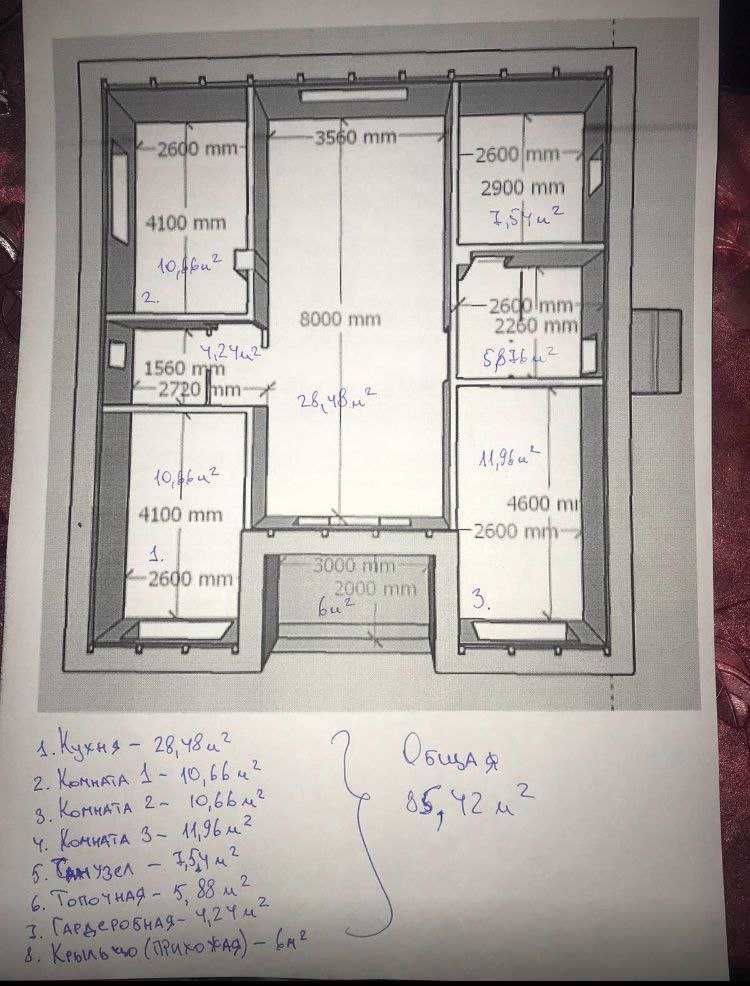 2600 mm
3560 mm
2600 mm
4100 mm
2900 mm
7,54 м²
10,66 м²
2.
8000 mm
2600 mm
2260 mm
4,24 м²
1560 mm
2720 mm
28,48 м²
11,96 м²
10,66 м²
4100 mm
4600 m
2600 mm
1.
2600 mm
3000 mm
2000 mm
6 м²
3.
1. Кухня – 28,48 м²
2. Комната 1 – 10,66 м²
3. Комната 2 – 10,66 м²
4. Комната 3 – 11,96 м²
5. Санузел – 7,54 м²
6. Топочная – 5,88 м²
7. Гардеробная – 4,24 м²
8. Крыльцо (прихожая) – 6 м²
Общая
85,42 м²